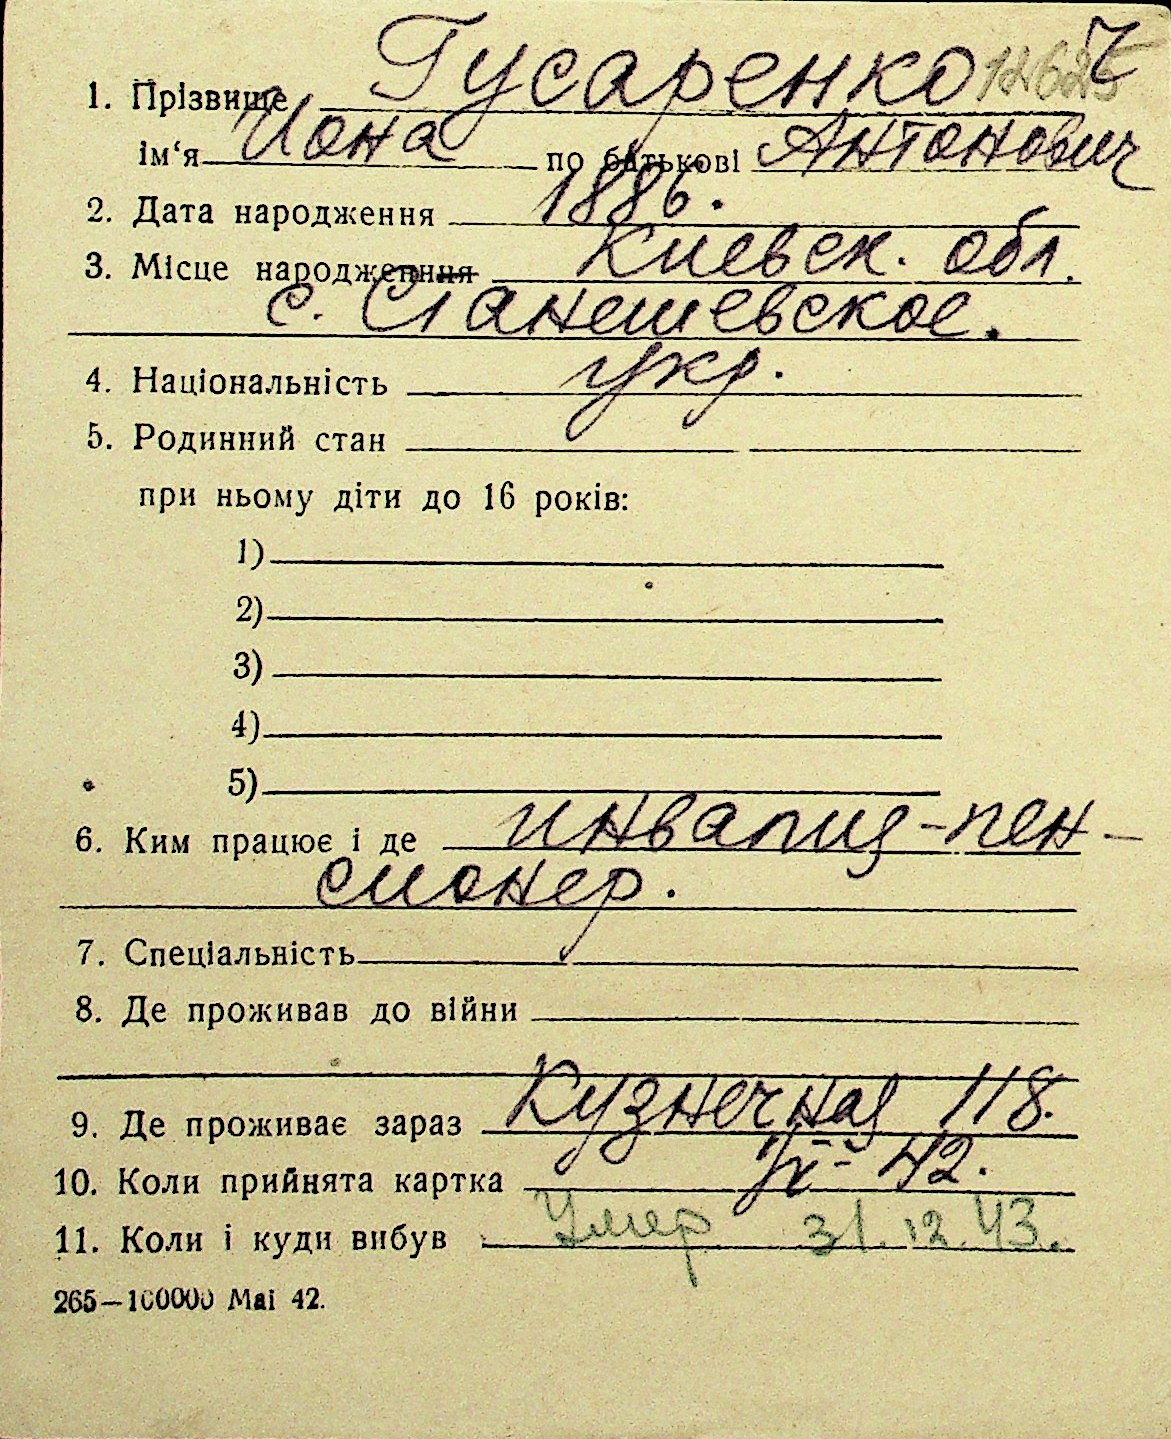 1. Прізвище Гусаренко 12625 7
ім‘я Иона по батькові Антонович
2. Дата народження 1886.
3. Місце народження Киевск. обл.
с. Станешевское.
4. Національність укр.
5. Родинний стан
при ньому діти до 16 років:
1)
2)
3)
4)
5)
6. Ким працює і де инвалид-пен-
сионер.
7. Спеціальність
8. Де проживав до війни
9. Де проживає зараз Кузнечная 118.
10. Коли прийнята картка IX- 42.
11. Коли і куди вибув Умер 31.12.43.
265—100000 Маі 42.